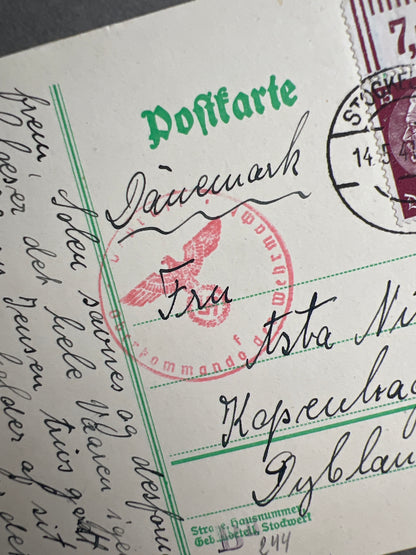 Postkarte
7,
STOCKE
14.5.4
Dänemark
Oberkommando der Wehrmacht
Fru
Asta Ni
Kopenha
Dybbau
Straße, Hausnummer,
Gebäudeteil, Stockwerk
244
frem. Solen savnes og desfor
det hele Vaaren ige
Jensen trives godt
holder af sit